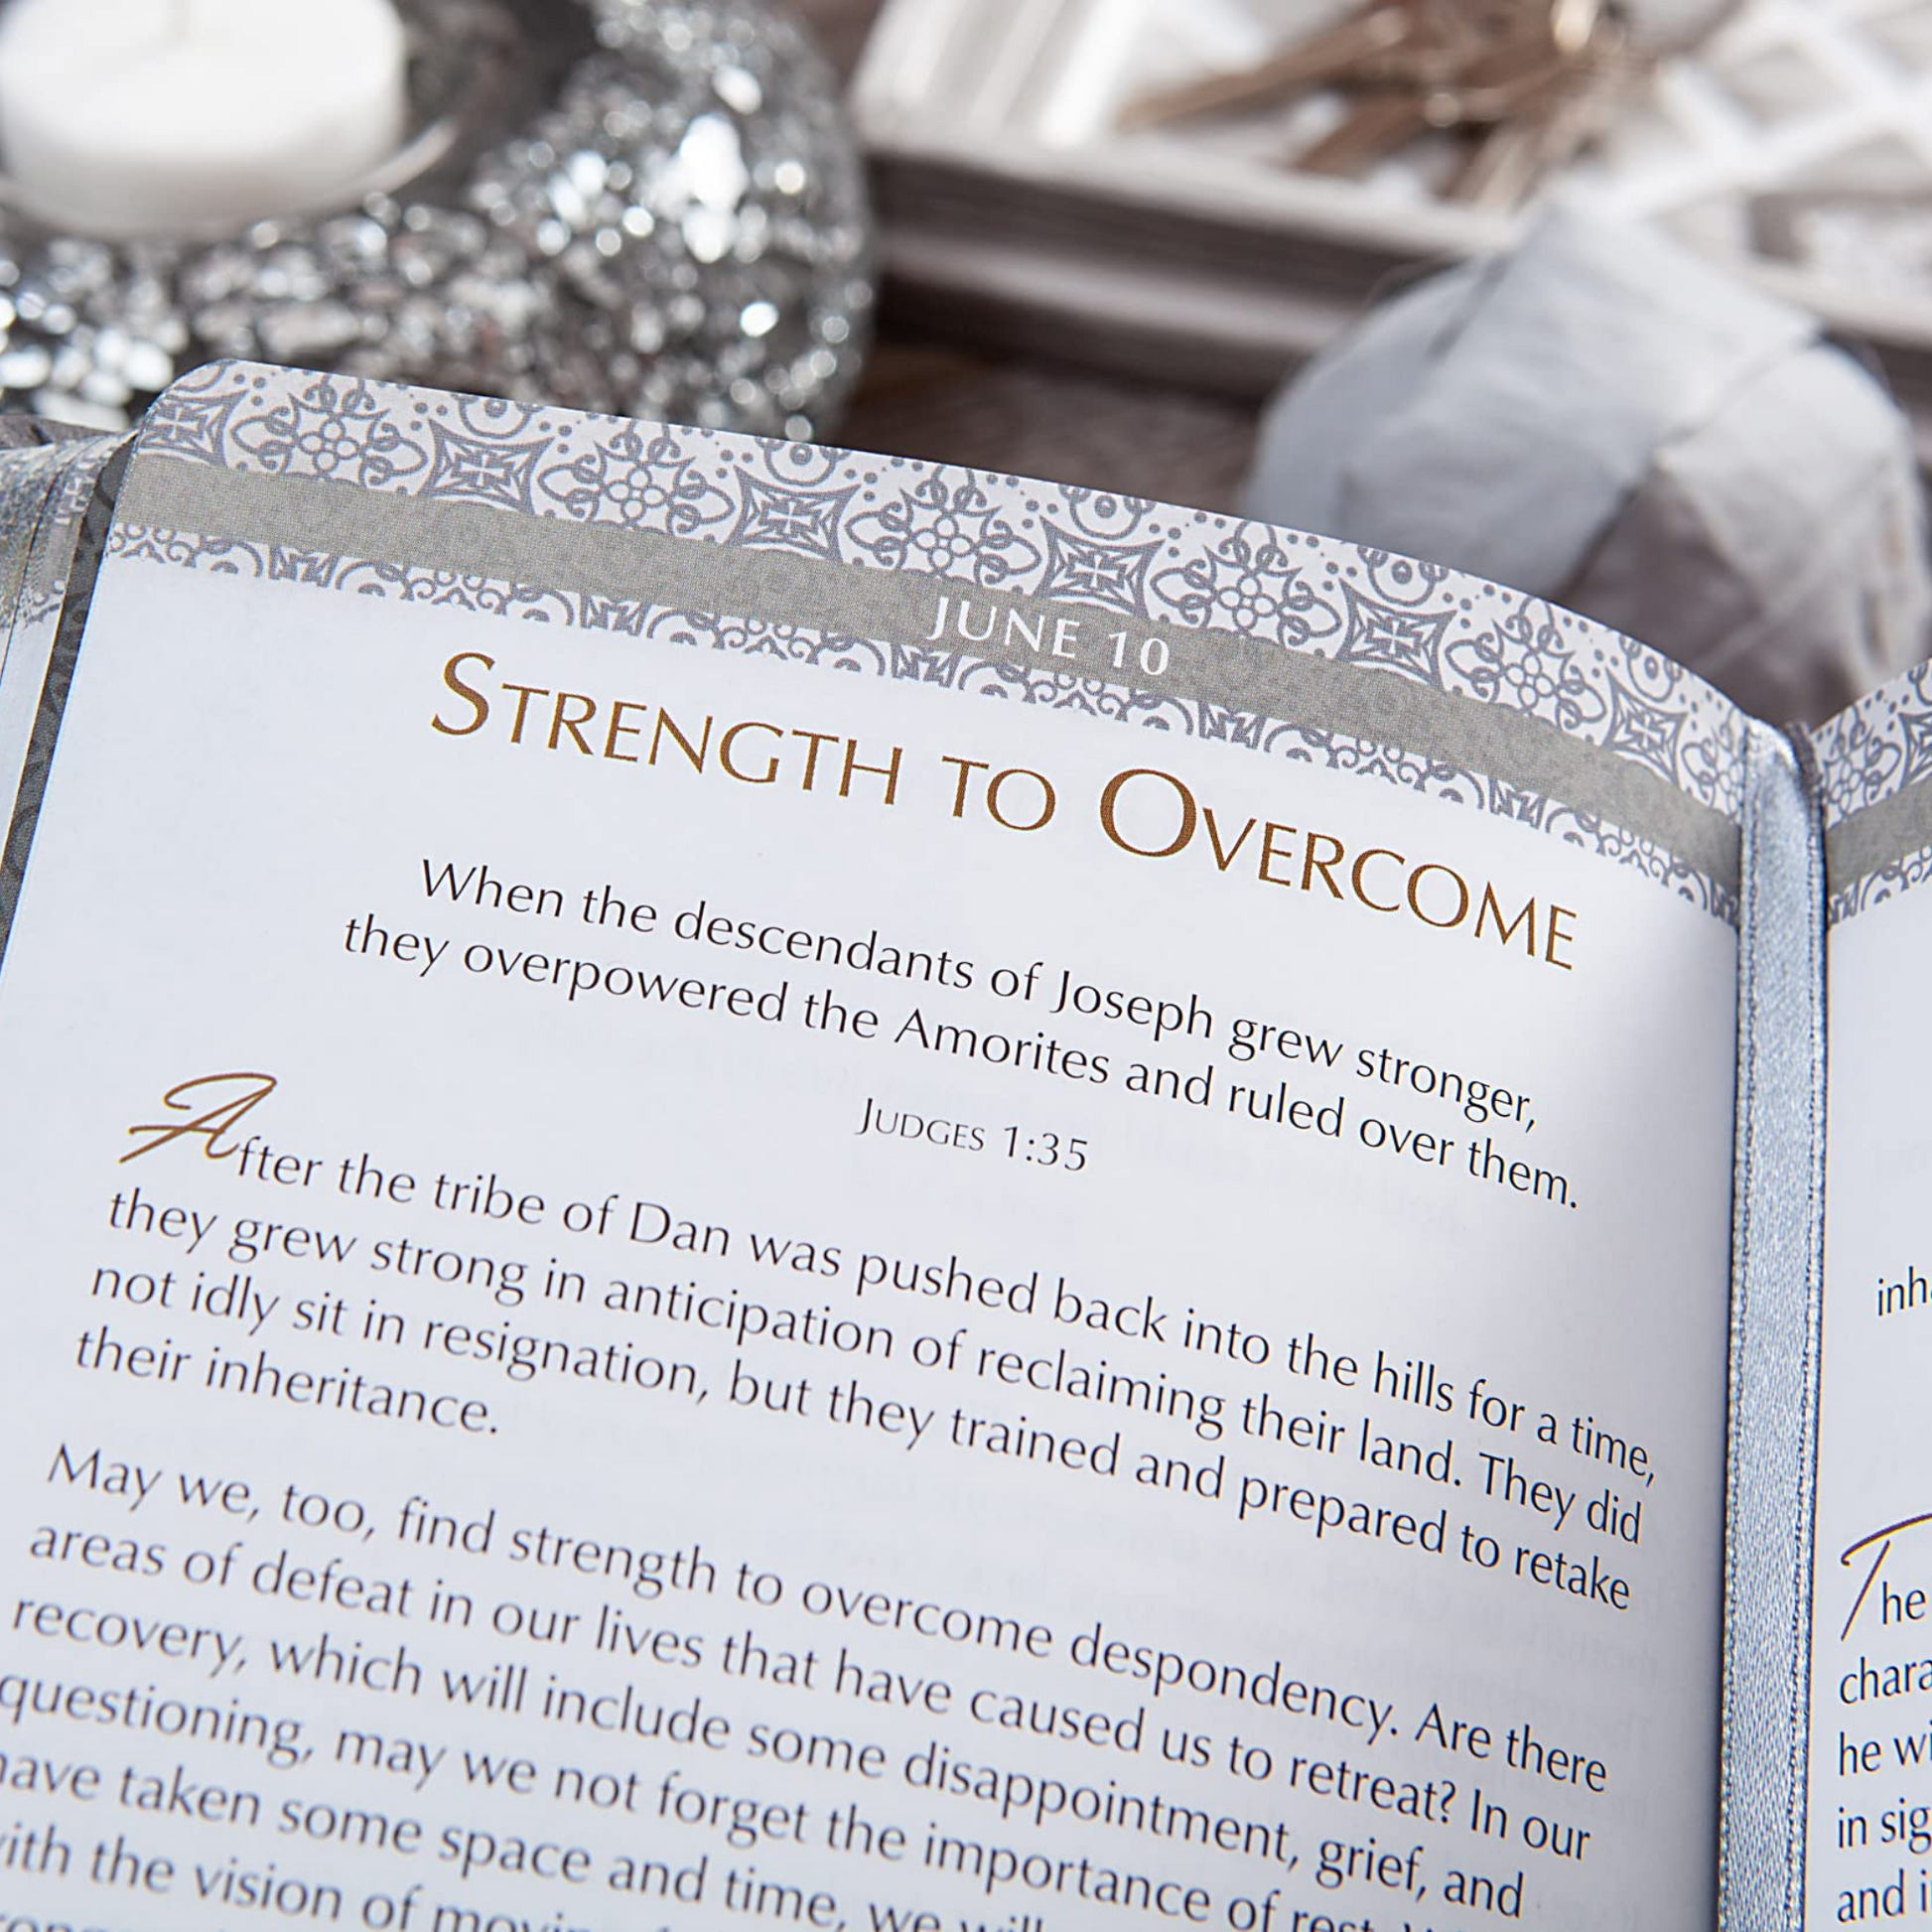 JUNE 10
STRENGTH TO OVERCOME
When the descendants of Joseph grew stronger,
they overpowered the Amorites and ruled over them.
JUDGES 1:35
After the tribe of Dan was pushed back into the hills for a time,
they grew strong in anticipation of reclaiming their land. They did
not idly sit in resignation, but they trained and prepared to retake
their inheritance.
May we, too, find strength to overcome despondency. Are there
areas of defeat in our lives that have caused us to retreat? In our
recovery, which will include some disappointment, grief, and
questioning, may we not forget the importance of rest.
have taken some space and time, we will
with the vision of
The
he
in
and